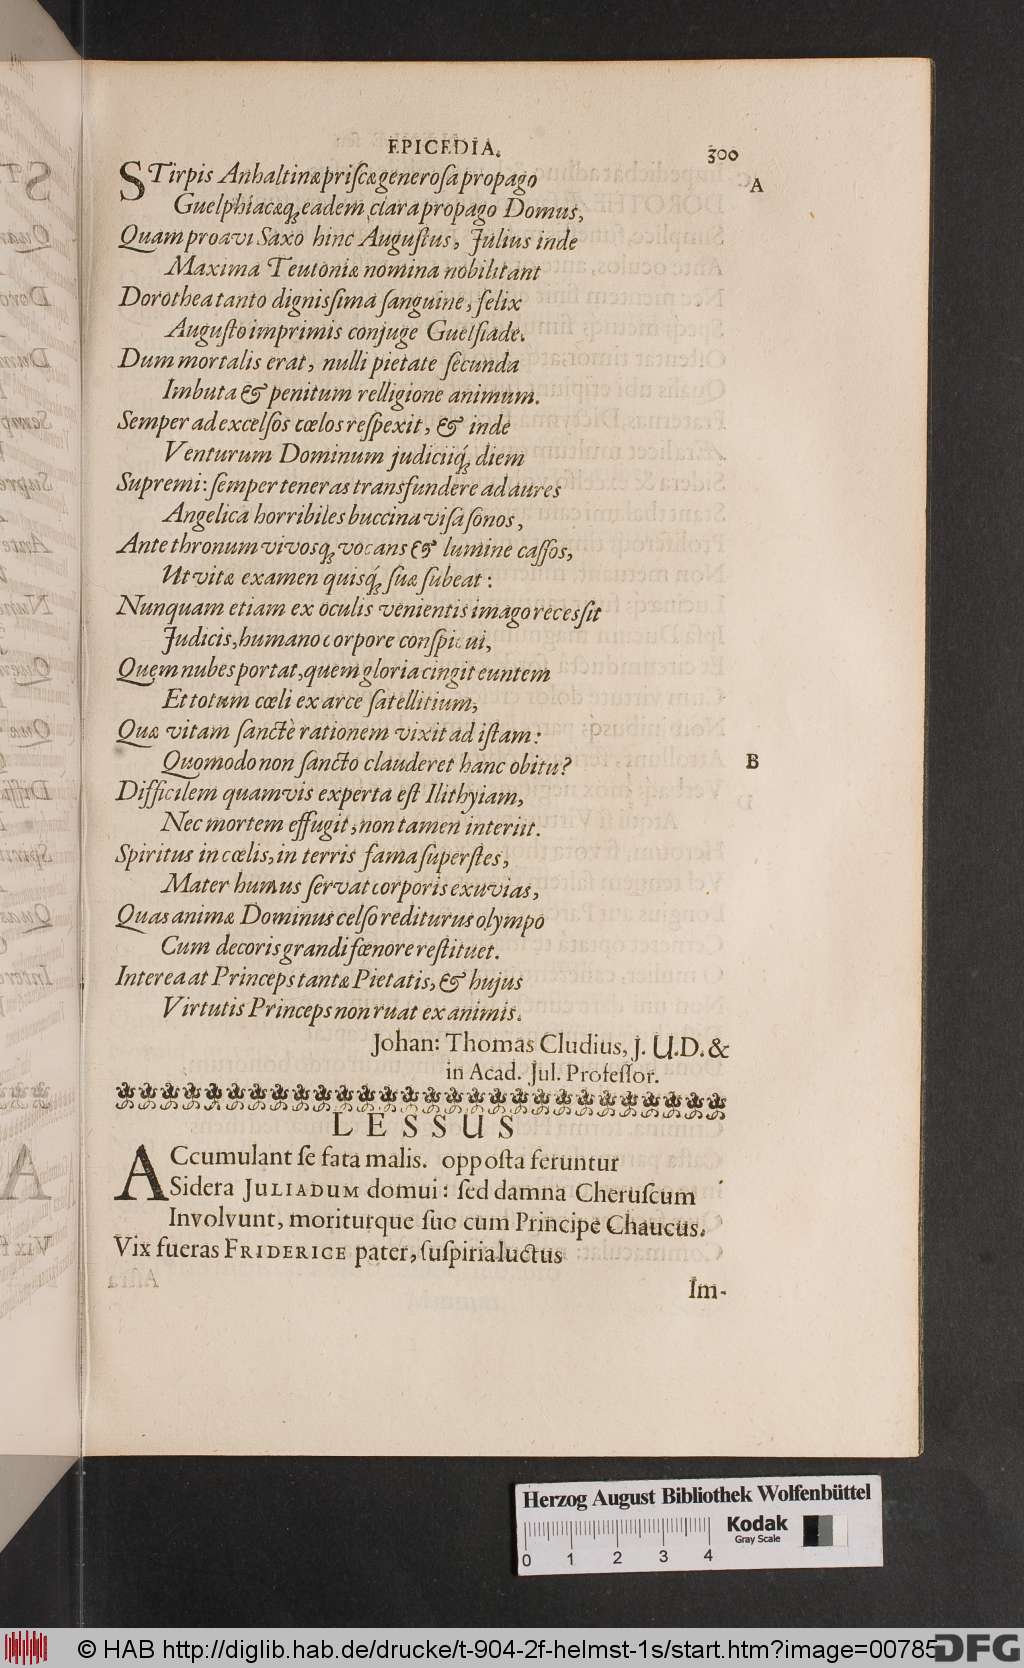 EPICEDIA. 300
STirpis Anhaltinæ priscæ generosa propago A
Guelphiacæq; eadem clara propago Domus,
Quam proavi Saxo hinc Augustus, Julius inde
Maxima Teutoniæ nomina nobilitant
Dorothea tanto dignissima sanguine, felix
Augusto imprimis conjuge Guelfiade.
Dum mortalis erat, nulli pietate secunda
Imbuta & penitum relligione animum.
Semper ad excelsos cœlos respexit, & inde
Venturum Dominum judiciiq́; diem
Supremi: semper teneras transfundere ad aures
Angelica horribiles buccina visa sonos,
Ante thronum vivosq; vocans & lumine cassos,
Ut vitæ examen quisq́; suæ subeat:
Nunquam etiam ex oculis venientis imago recessit
Judicis, humano corpore conspicui,
Quem nubes portat, quem gloria cingit euntem
Et totum cœli ex arce satellitium,
Quæ vitam sanctè rationem vixit ad istam:
Quomodo non sancto clauderet hanc obitu? B
Difficilem quamvis experta est Ilithyiam,
Nec mortem effugit, non tamen interiit.
Spiritus in cœlis, in terris fama superstes,
Mater humus servat corporis exuvias,
Quas animæ Dominus celso rediturus olympo
Cum decoris grandi fœnore restituet.
Interea at Princeps tantæ Pietatis, & hujus
Virtutis Princeps non ruat ex animis.
Johan: Thomas Cludius, J. U.D. &
in Acad. Jul. Professor.
LESSUS
ACcumulant se fata malis. opposta feruntur
Sidera JULIADUM domui: sed damna Cheruscum
Involvunt, moriturque suo cum Principe Chaucus.
Vix fueras FRIDERICE pater, suspiria luctus
Im-
Herzog August Bibliothek Wolfenbüttel
Kodak
Gray Scale
0 1 2 3 4
© HAB http://diglib.hab.de/drucke/t-904-2f-helmst-1s/start.htm?image=00785
DFG